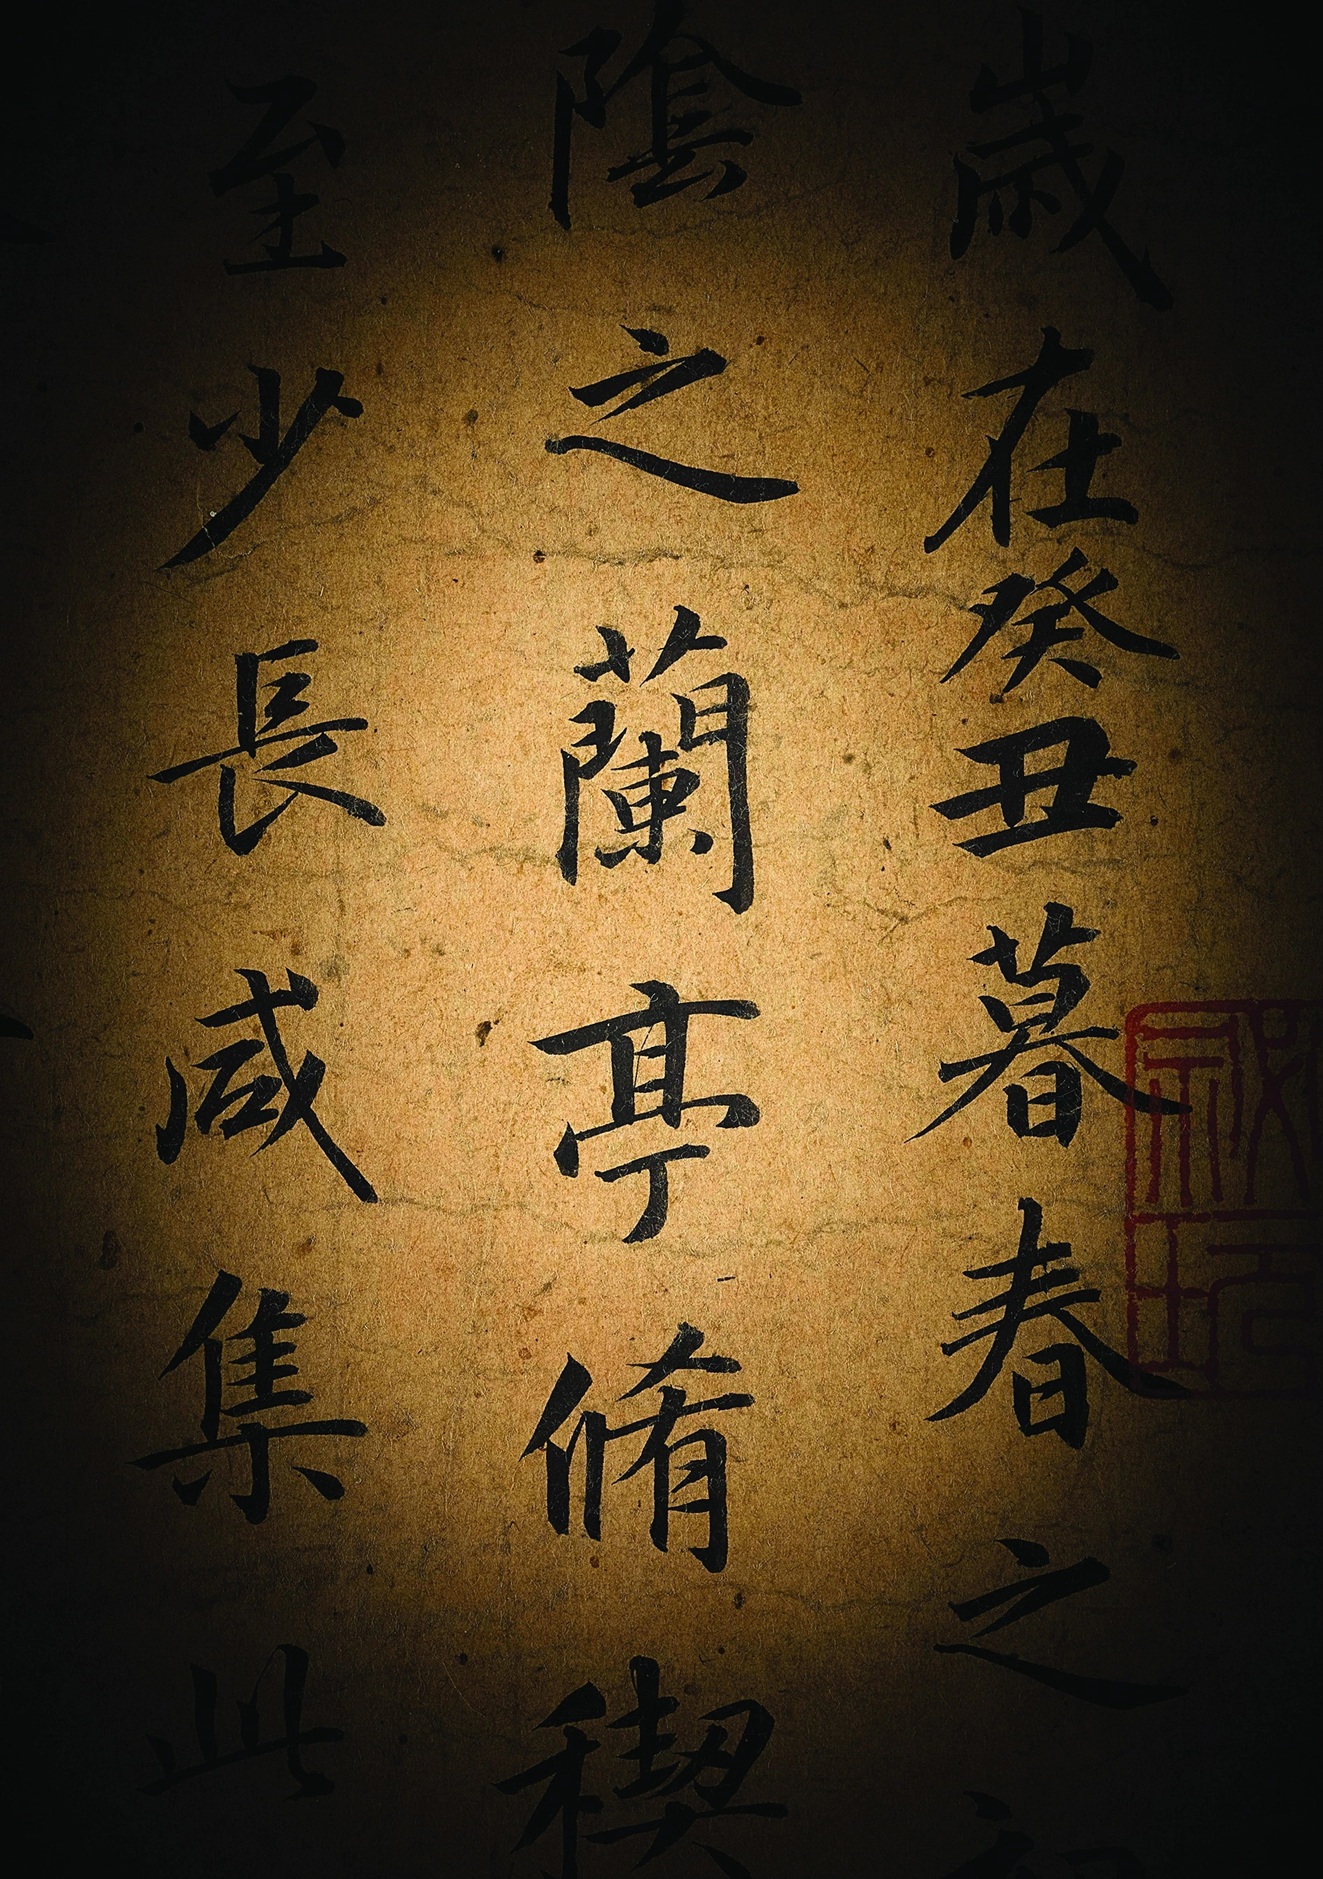 歲在癸丑暮春之初
陰之蘭亭脩稧
至少長咸集此